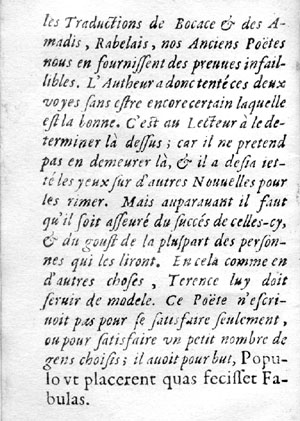 les Traductions de Bocace & des A-
madis, Rabelais, nos Anciens Poëtes
nous en fournissent des preuues infail-
libles. L'Autheur a donc tenté ces deux
voyes sans estre encore certain laquelle
est la bonne. C'est au Lecteur à le de-
terminer là dessus; car il ne pretend
pas en demeurer là, & il a desia iet-
té les yeux sur d'autres Nouuelles pour
les rimer. Mais auparauant il faut
qu'il soit asseuré du succés de celles-cy,
& du goust de la pluspart des person-
nes qui les liront. En cela comme en
d'autres choses, Terence luy doit
seruir de modele. Ce Poëte n'escri-
uoit pas pour se satisfaire seulement,
ou pour satisfaire vn petit nombre de
gens choisis; il auoit pour but, Popu-
lo vt placerent quas fecisset Fa-
bulas.